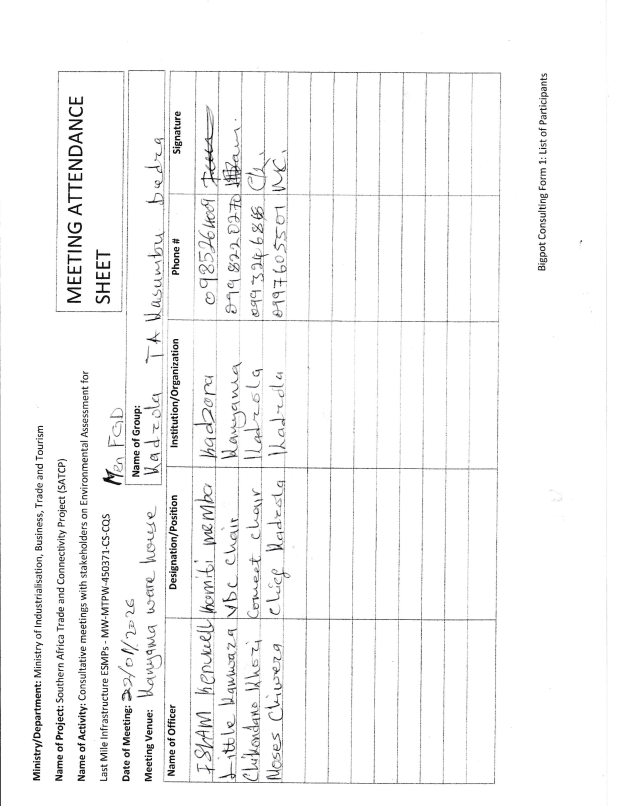 Ministry/Department: Ministry of Industrialisation, Business, Trade and Tourism
Name of Project: Southern Africa Trade and Connectivity Project (SATCP)
Name of Activity: Consultative meetings with stakeholders on Environmental Assessment for
Last Mile Infrastructure ESMPs - MW-MTPW-450371-CS-CQS
MEETING ATTENDANCE
SHEET
Men FGD
Date of Meeting: 22/01/2026
Name of Group:
Meeting Venue: Kanyama ware house
Kadzola TA Kasumbu Dedza
Name of Officer Designation/Position Institution/Organization Phone # Signature
komiti member kadzora 0985264009
Little VDC Chair Kanyama 0998220270
Chikondano Khozi Comeet chair Kadzola 09932468
Moses Chiwera Chief Kadzola Kadzola 0997605501 M.C.
Bigpot Consulting Form 1: List of Participants